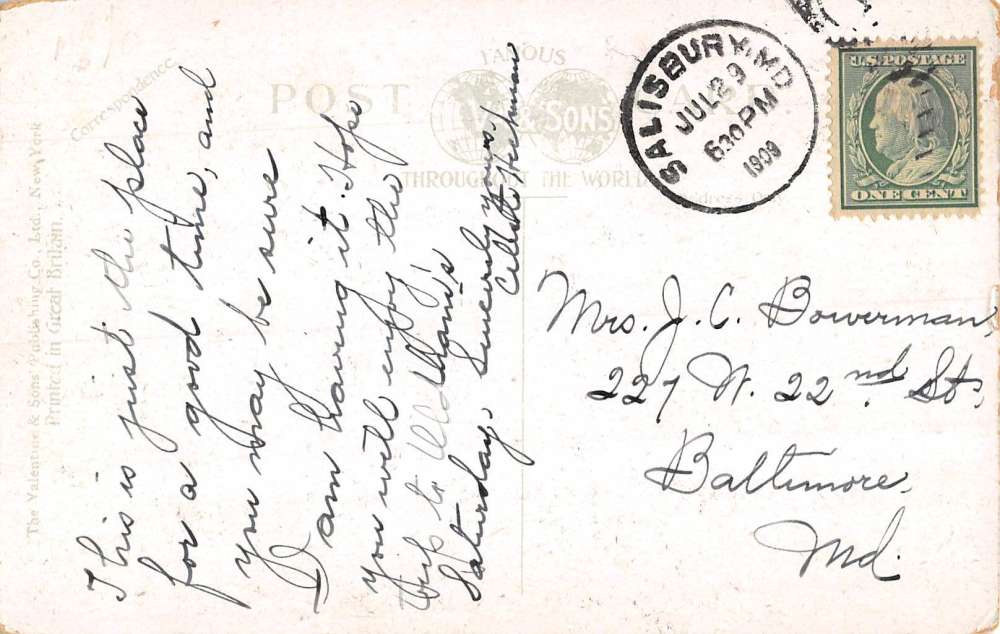 This is just the place
for a good time, and
you may be sure
I am having it. Hope
you will enjoy the
trip to
Saturday, Sincerely yours,
Correspondence.
POST
FAMOUS
& SONS
THROUGHOUT THE WORLD
The Valentine & Sons Publishing Co., Ltd., New York
Printed in Great Britain.
SALISBURY, MD.
JUL 29
630 PM
1909
U.S. POSTAGE
ONE CENT
Mrs. J. C. Bowerman,
227 W. 22nd St.,
Baltimore,
Md.